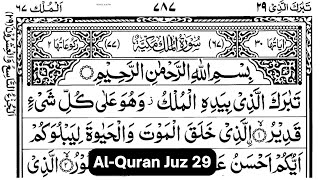 تَبٰرَكَ الَّذِیْ ٢٩ ٧٨٧ اَلْمُلْك ٦٧
اٰیَاتُهَا ٣٠ (٦٧) سُوْرَةُ الْمُلْكِ مَكِّیَّةٌ (٧٧) رُكُوْعَاتُهَا ٢
بِسْمِ اللّٰهِ الرَّحْمٰنِ الرَّحِیْمِ
تَبٰرَكَ الَّذِیْ بِیَدِهِ الْمُلْكُ ز وَهُوَ عَلٰی كُلِّ شَیْءٍ
قَدِیْرٌ الَّذِیْ خَلَقَ الْمَوْتَ وَالْحَیٰوةَ لِیَبْلُوَكُمْ
اَیُّكُمْ اَحْسَنُ الَّذِیْ
Al-Quran Juz 29